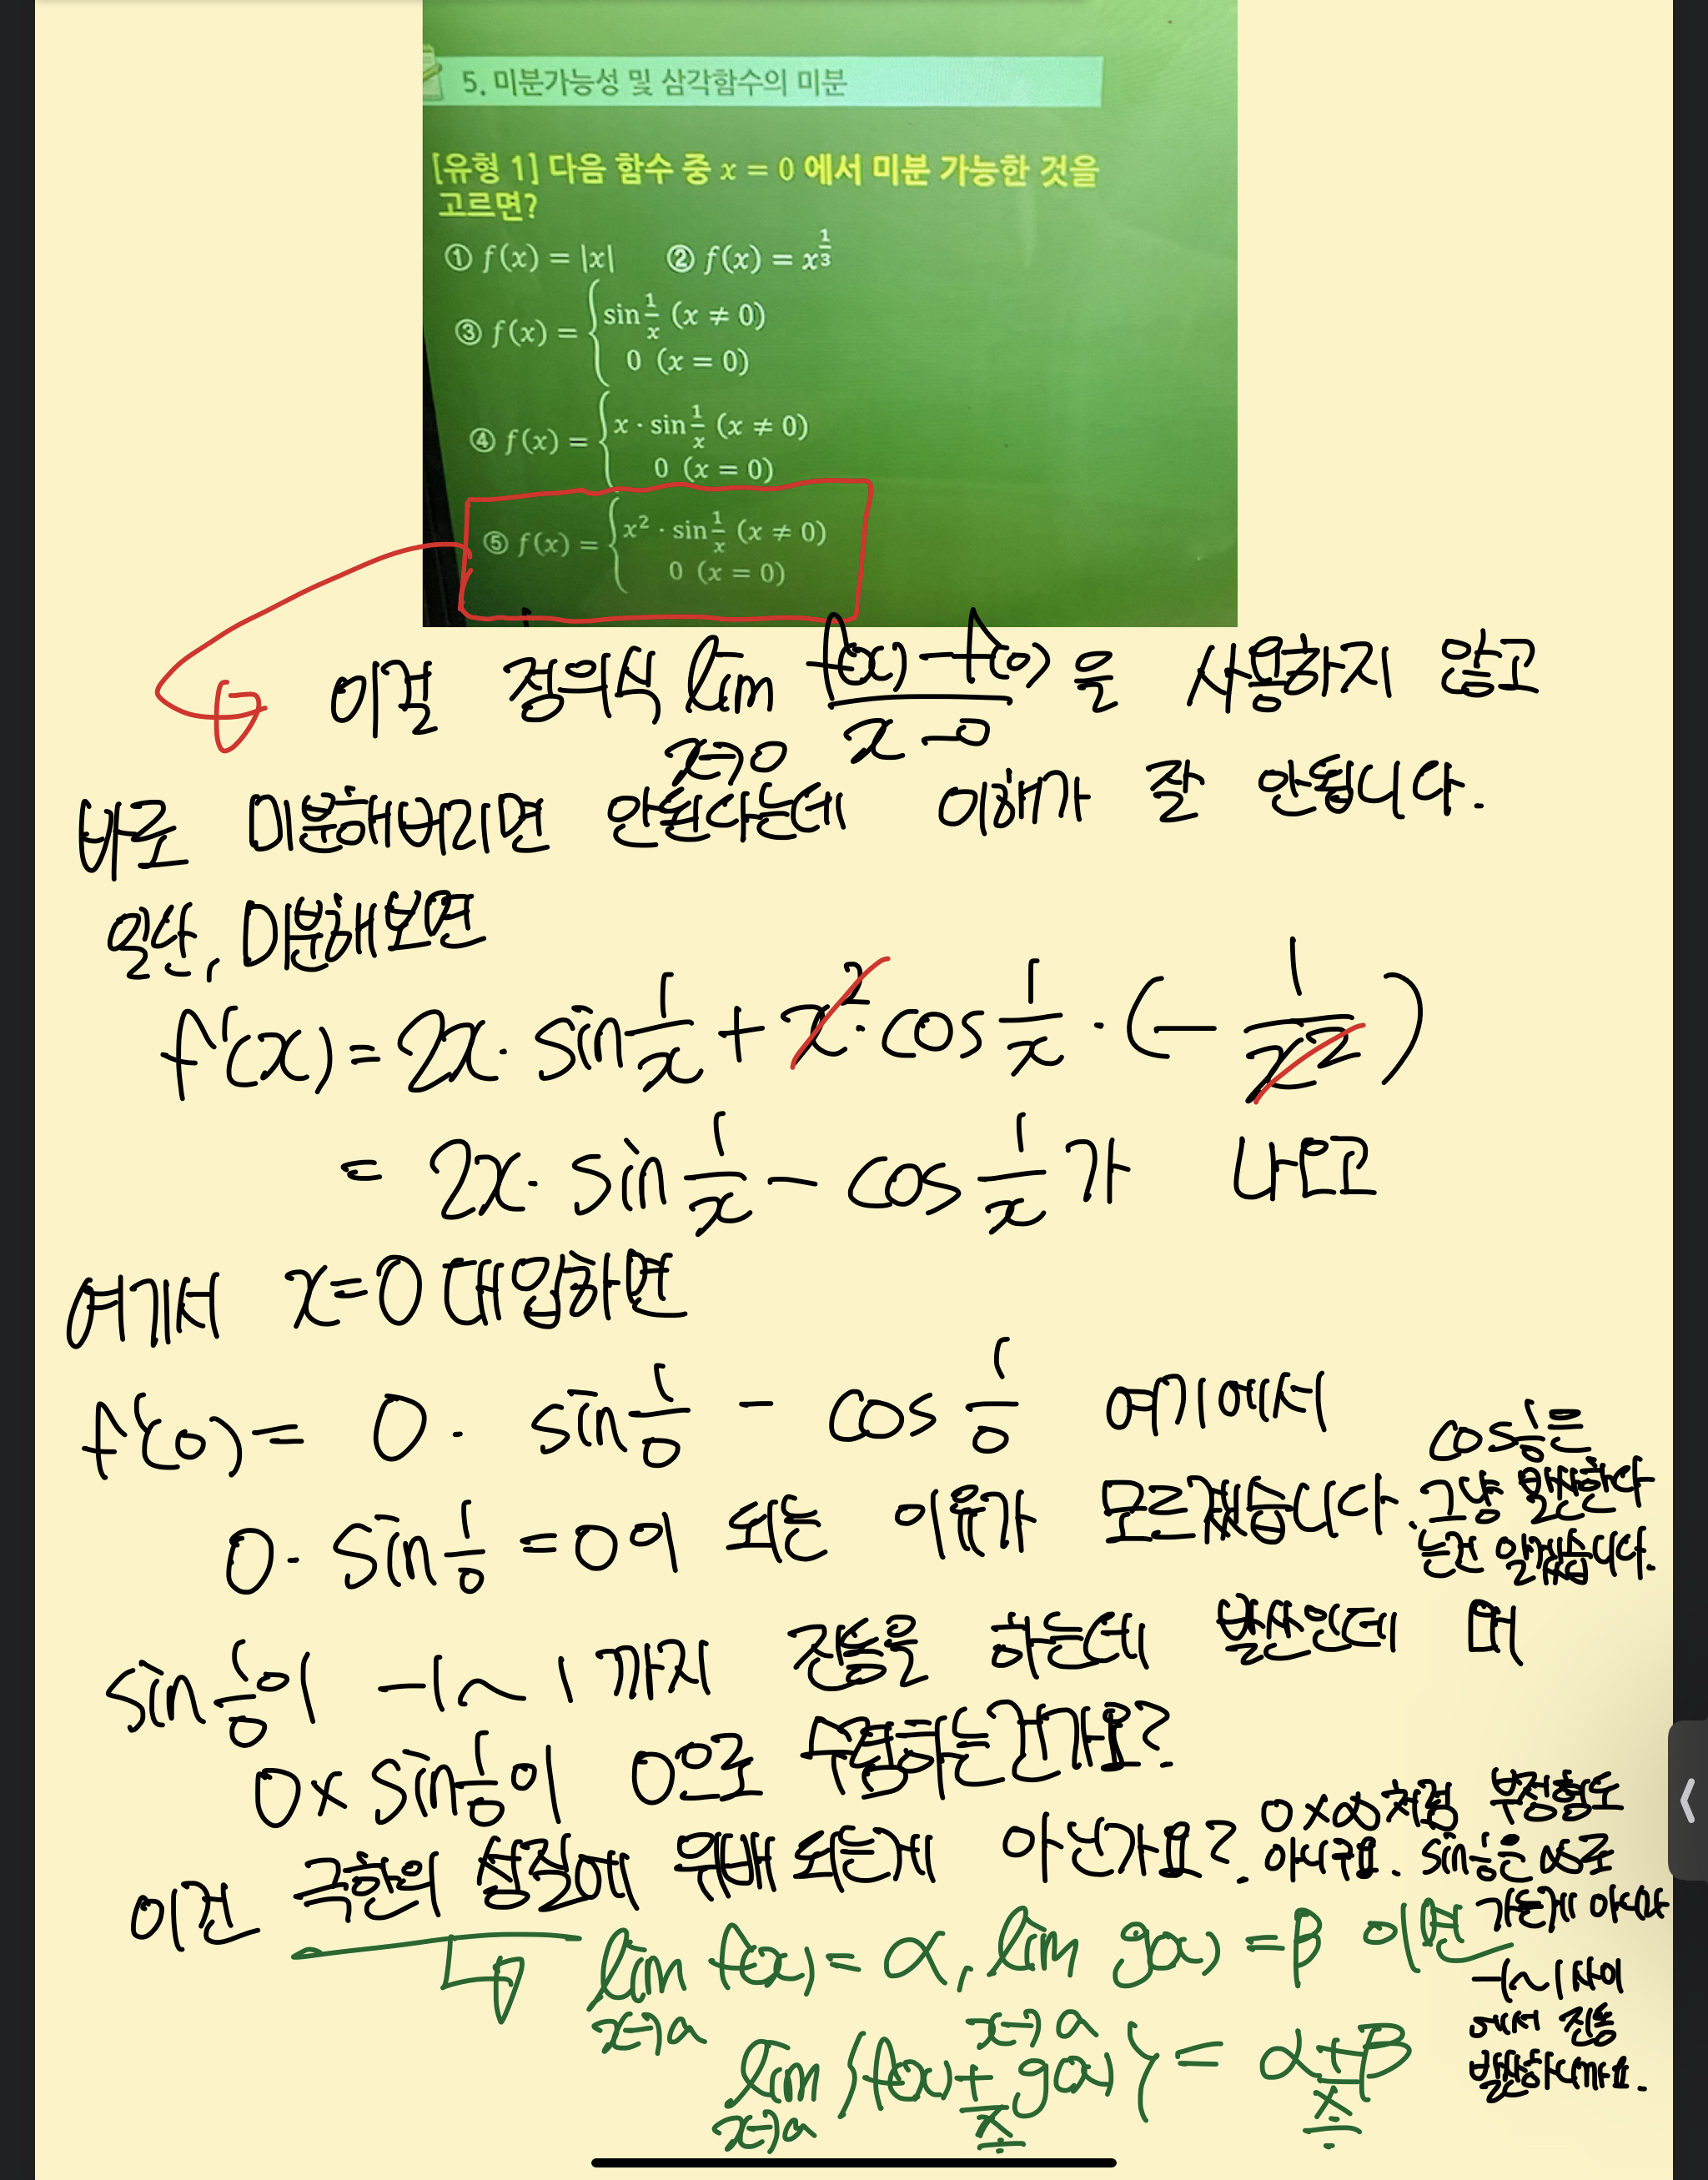 5. 미분가능성 및 삼각함수의 미분
[유형 1] 다음 함수 중 x = 0 에서 미분 가능한 것을
고르면?
① f(x) = |x| ② f(x) = x^(1/3)
③ f(x) = { sin 1/x (x ≠ 0)
0 (x = 0)
④ f(x) = { x · sin 1/x (x ≠ 0)
0 (x = 0)
⑤ f(x) = { x² · sin 1/x (x ≠ 0)
0 (x = 0)
이걸 정의식 lim x→0 (f(x)-f(0))/(x-0) 을 사용하지 않고
바로 미분해버리면 안된다는데 이해가 잘 안됩니다.
일단, 미분해보면
f'(x) = 2x · sin 1/x + x² · cos 1/x · (- 1/x²)
= 2x · sin 1/x - cos 1/x 가 나오고
여기서 x=0 대입하면
f'(0) = 0 · sin 1/0 - cos 1/0 여기에서
0 · sin 1/0 = 0 이 되는 이유가 모르겠습니다.
cos 1/0은
그냥 발산한다
는건 알겠습니다.
sin 1/0이 -1~1까지 진동을 하는데 발산인데 왜
0 × sin 1/0이 0으로 수렴하는건가요?
이건 극한의 성질에 위배되는게 아닌가요?
0×∞처럼 부정형도
아니구요. sin 1/0은 ∞로
가는게 아니라
-1~1사이
에서 진동
발산하니까요.
↳ lim x→a f(x) = α, lim x→a g(x) = β 이면
lim x→a {f(x) + g(x)} = α + β
× ×
÷ ÷